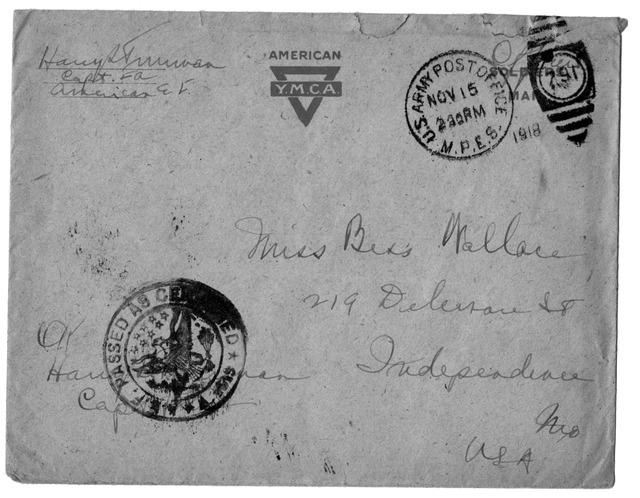 Harry S Truman
Capt. FA
American E F
AMERICAN
Y.M.C.A.
SOLDIER'S
MAIL
U.S. ARMY POST OFFICE
NOV 15
M.P.E.S.
1918
Miss Bess Wallace
219 Delaware St
Independence
Mo
USA
A.E.F. PASSED AS CENSORED
OK
Harry S Truman
Capt